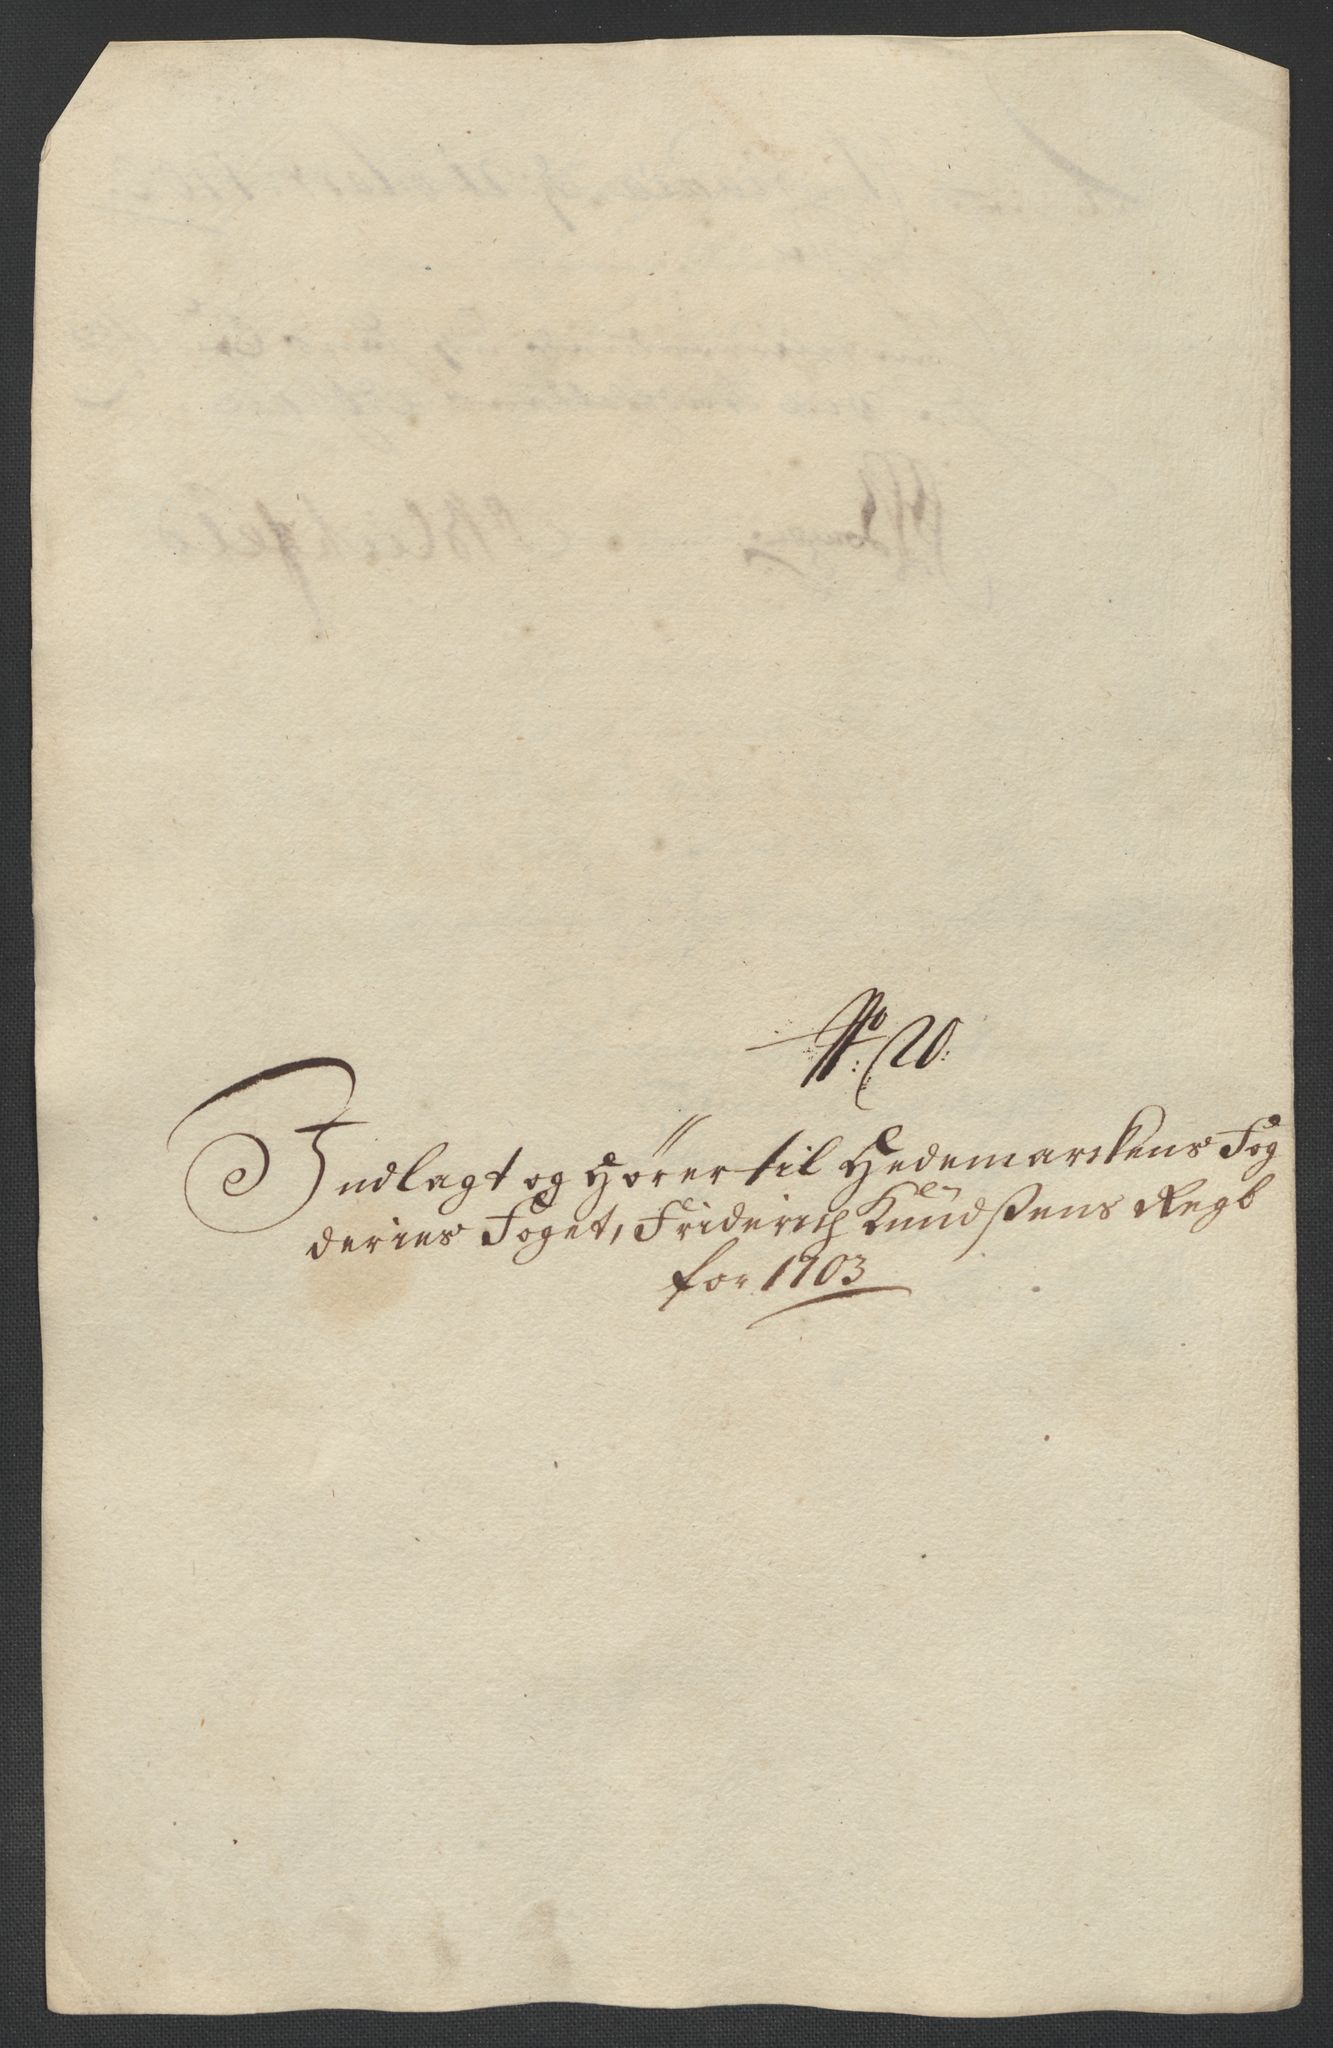 No. 20.
Indlagt og hører til Hedemarckens Fog
deries Foget, Friderich Knudsens Regb
for 1703